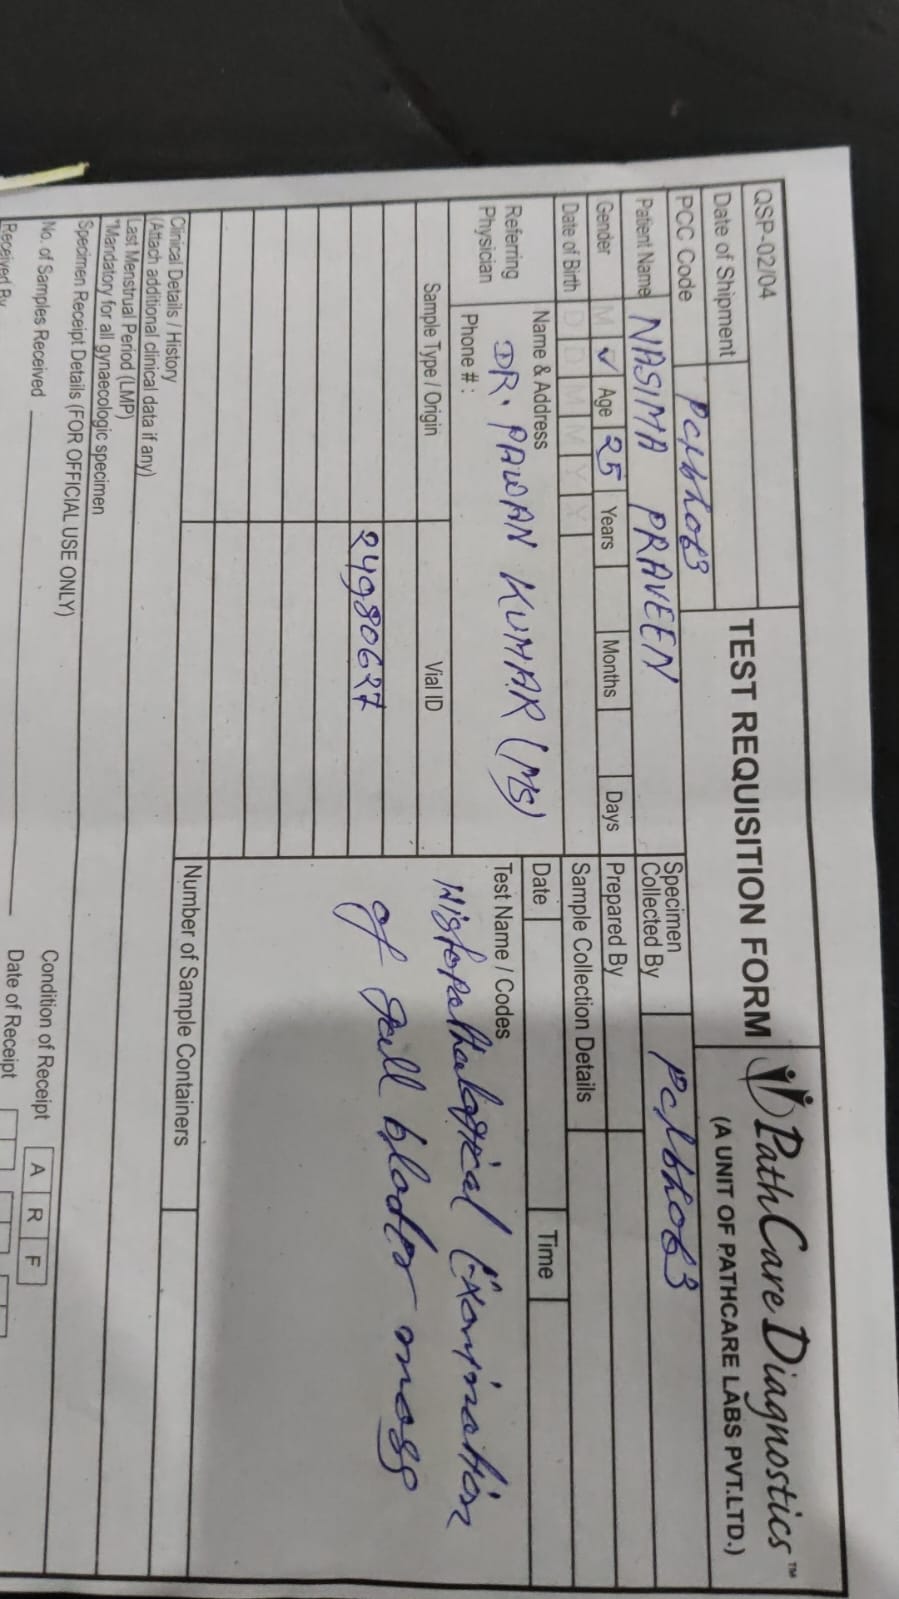 QSP-02/04
TEST REQUISITION FORM
PathCare Diagnostics™
(A UNIT OF PATHCARE LABS PVT.LTD.)
Date of Shipment
PCC Code
Patient Name NASIMA PRAVEEN
Specimen Collected By
Gender M ✓ Age 25 Years Months Days
Prepared By
Date of Birth D D M M Y Y
Sample Collection Details
Date Time
Referring Physician
Name & Address
DR. PAWAN KUMAR (MS)
Phone # :
Test Name / Codes
Histopathological Exomination
of gall blader mass
Sample Type / Origin Vial ID
24980627
Number of Sample Containers
Clinical Details / History
(Attach additional clinical data if any)
Last Menstrual Period (LMP)
*Mandatory for all gynaecologic specimen
Specimen Receipt Details (FOR OFFICIAL USE ONLY)
No. of Samples Received
Condition of Receipt A R F
Received By
Date of Receipt